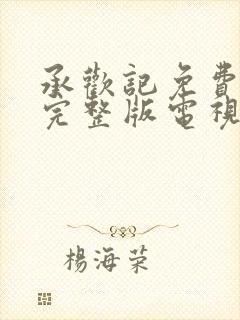 承歡記免費
完整版電視
楊海荣